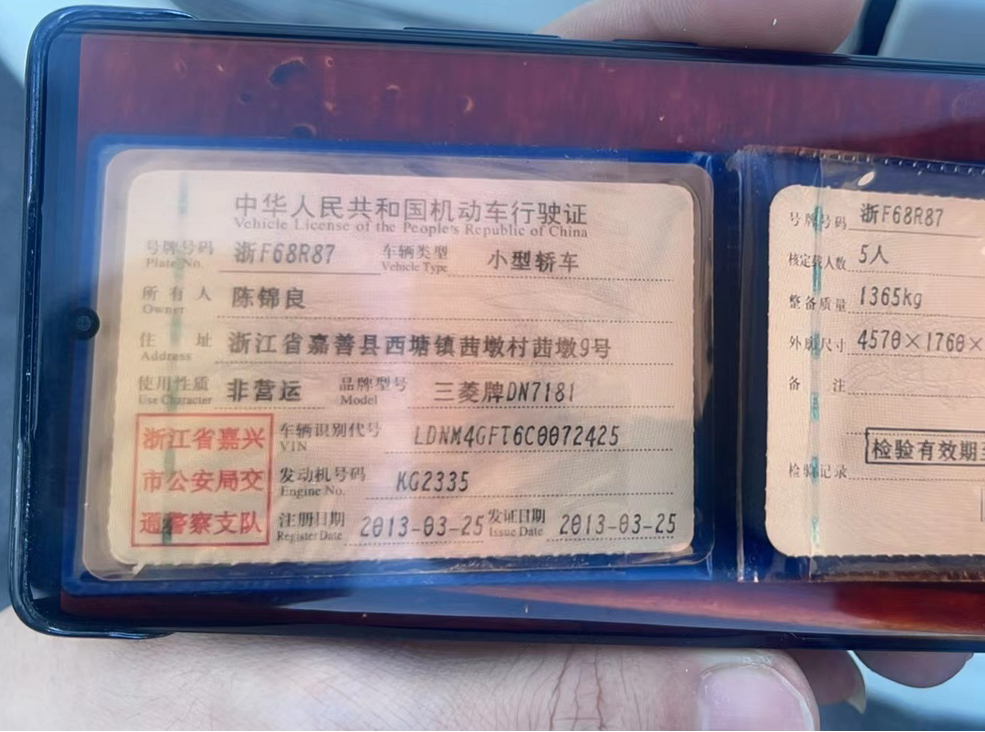 中华人民共和国机动车行驶证
Vehicle License of the People's Republic of China
号牌号码 浙F68R87 车辆类型 小型轿车
Plate No. Vehicle Type
所有人 陈锦良
Owner
住址 浙江省嘉善县西塘镇茜墩村茜墩9号
Address
使用性质 非营运 品牌型号 三菱牌DN7181
Use Character Model
浙江省嘉兴
市公安局交
通警察支队
车辆识别代号 LDNM4GFT6C0072425
VIN
发动机号码 KG2335
Engine No.
注册日期 2013-03-25 发证日期 2013-03-25
Register Date Issue Date
号牌号码 浙F68R87
核定载人数 5人
整备质量 1365kg
外廓尺寸 4570×1760×
备注
检验有效期至
检验记录